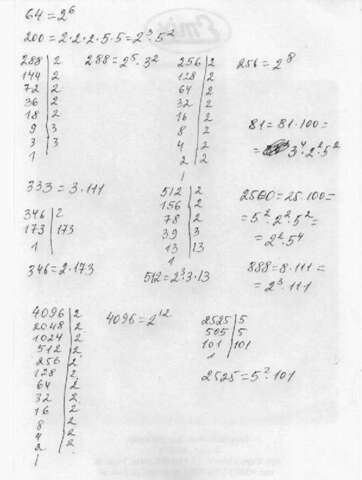 64=2⁶
200=2·2·2·5·5=2³·5²
288|2
144|2
72|2
36|2
18|2
9|3
3|3
1
288=2⁵·3²
256|2
128|2
64|2
32|2
16|2
8|2
4|2
2|2
1
256=2⁸
81=81·100=
=3⁴·2²·5²
333=3·111
346|2
173|173
1
346=2·173
512|2
156|2
78|2
39|3
13|13
1
512=2³·3·13
2500=25·100=
=5²·2²·5²=
=2²·5⁴
888=8·111=
=2³·111
4096|2
2048|2
1024|2
512|2
256|2
128|2
64|2
32|2
16|2
8|2
4|2
2|2
1
4096=2¹²
2525|5
505|5
101|101
1
2525=5²·101